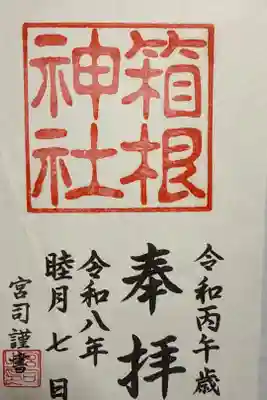 箱根
神社
令和丙午歳
奉拝
令和八年
睦月七日
宮司謹書